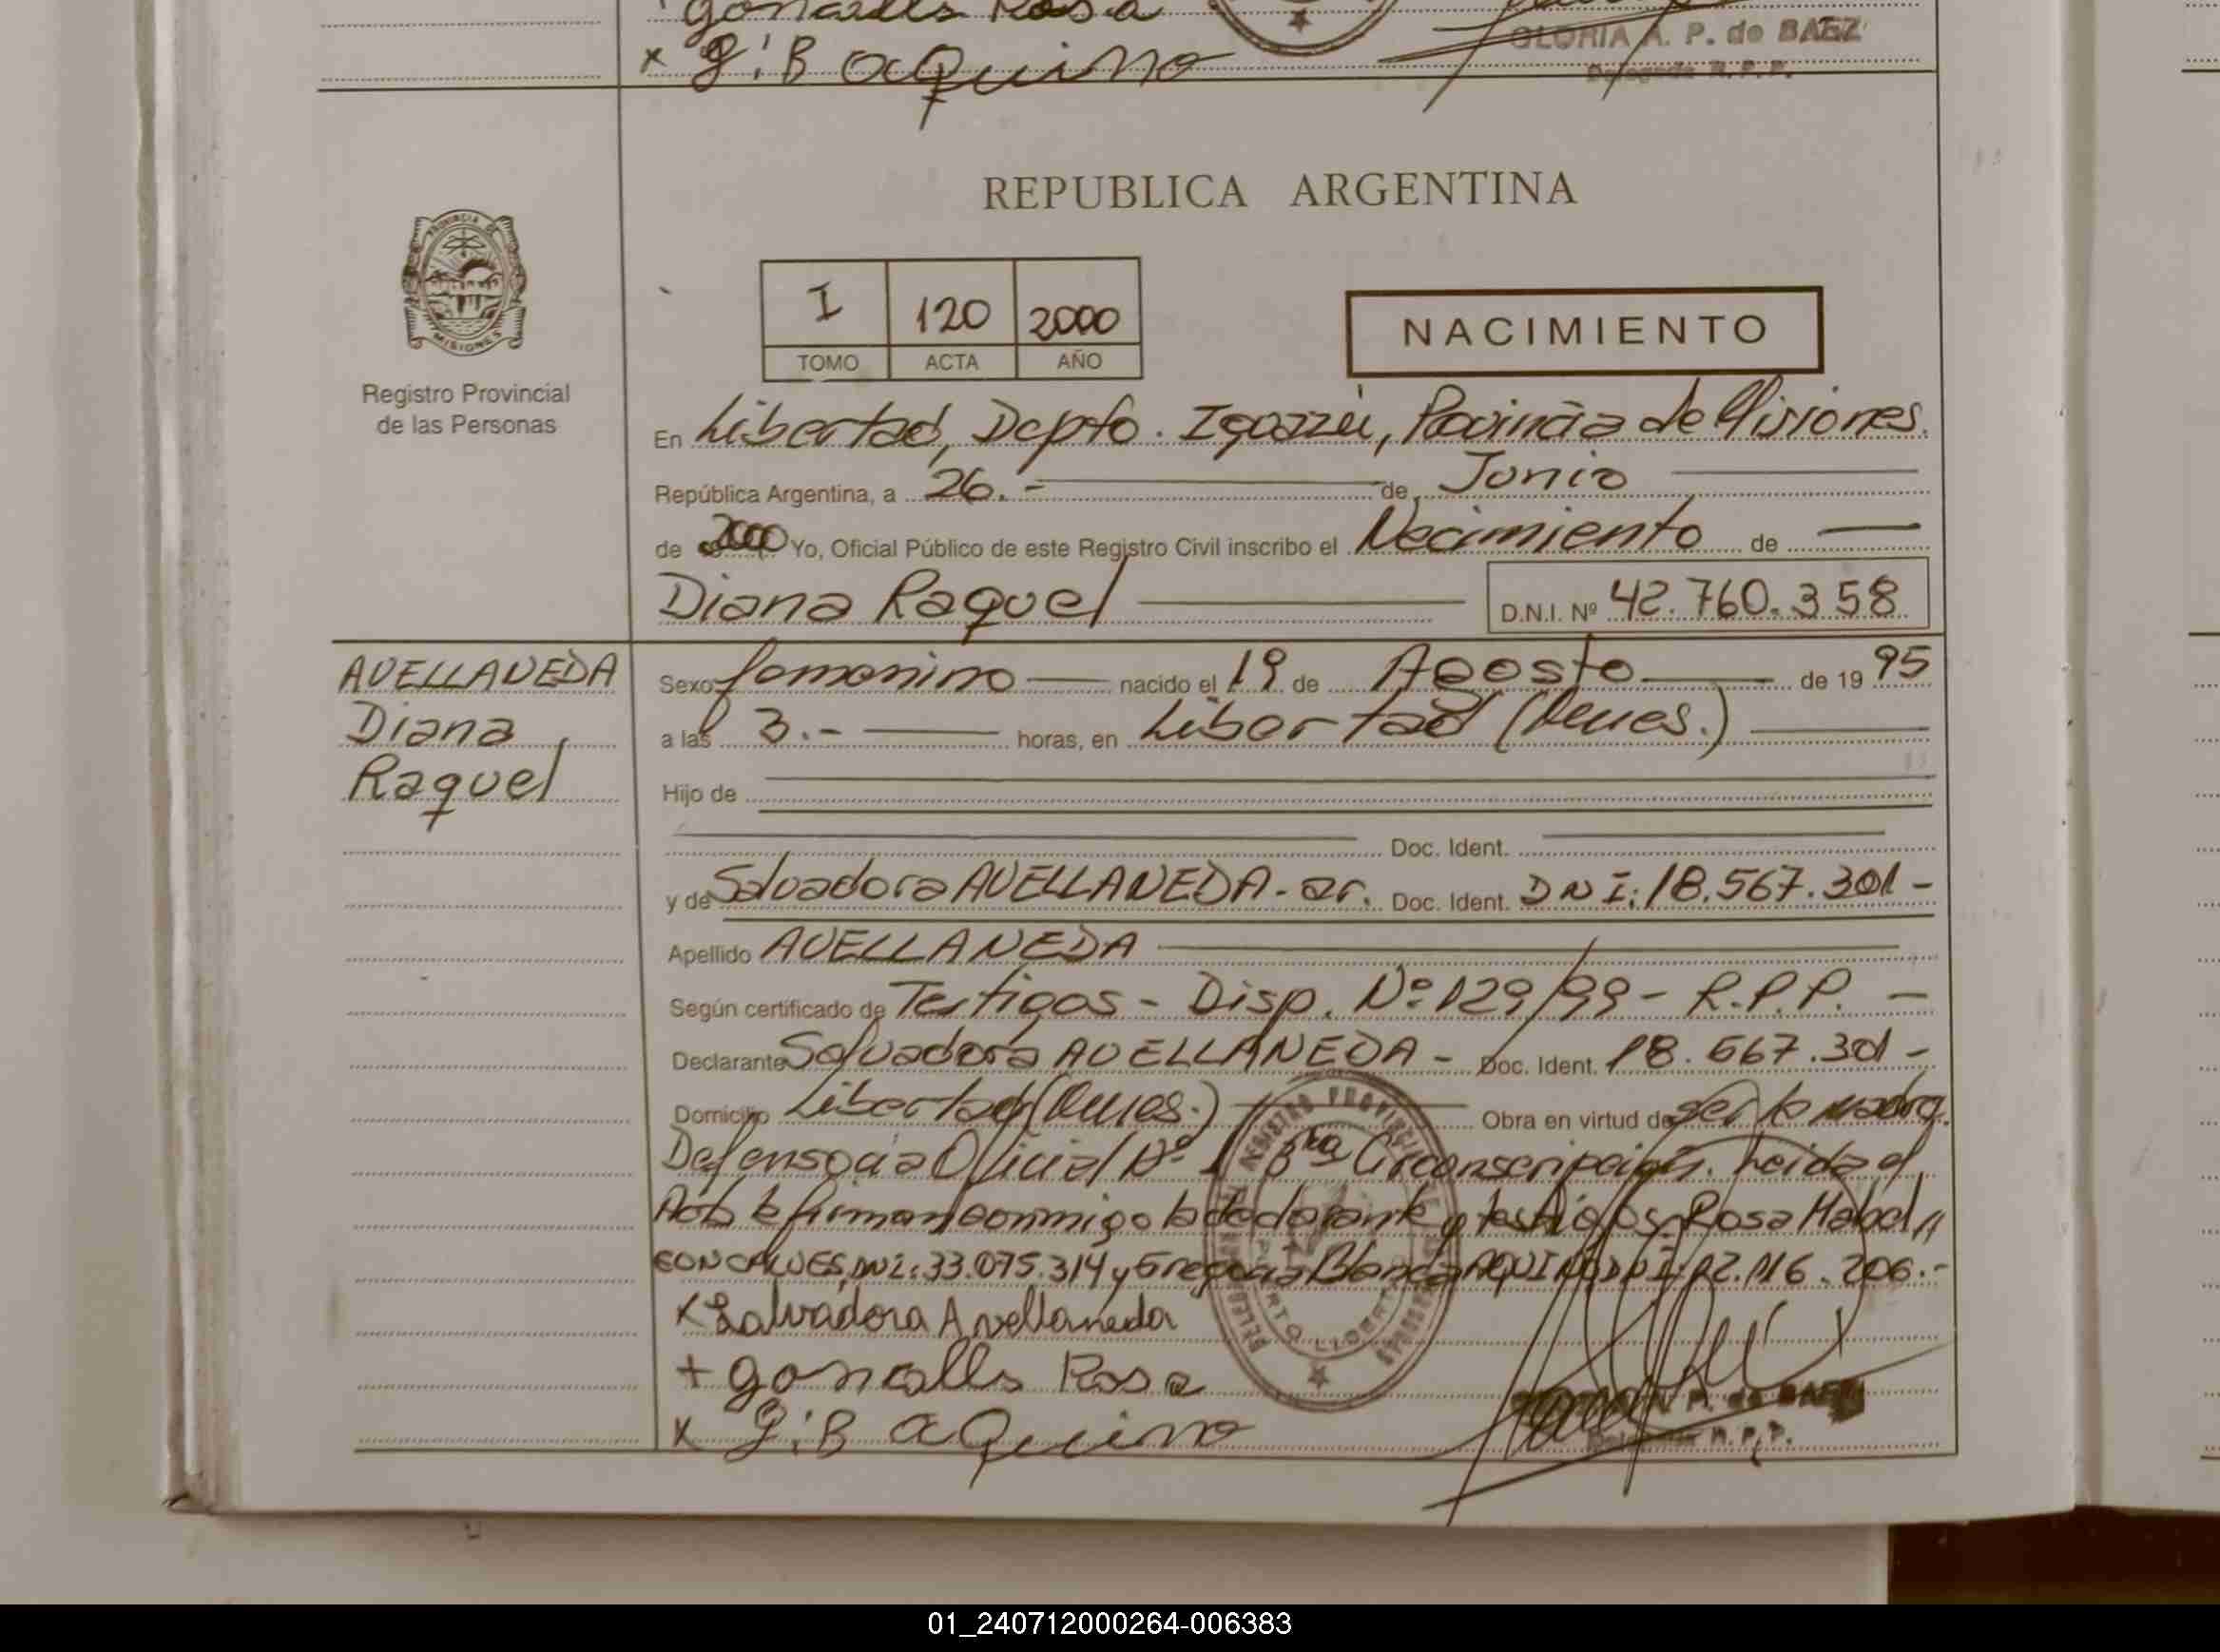 Goncalls Rosa
x G.B aquino
GLORIA A. P. de BAEZ
Delegada R. P. P.
PROVINCIA DE
MISIONES
Registro Provincial
de las Personas
REPUBLICA ARGENTINA
I 120 2000
TOMO ACTA AÑO
NACIMIENTO
En Libertad, Depto. Iguazú, Provincia de Misiones.
República Argentina, a 26.- de Junio
de 2000 Yo, Oficial Público de este Registro Civil inscribo el Nacimiento de
Diana Raquel D.N.I. Nº 42.760.358
AVELLANEDA
Diana
Raquel
Sexo femenino nacido el 19 de Agosto de 19 95
a las 3.- horas, en Libertad (Mnes.)
Hijo de
Doc. Ident.
y de Salvadora AVELLANEDA - ar. Doc. Ident. DNI: 18.567.301 -
Apellido AVELLANEDA
Según certificado de Testigos - Disp. Nº 129/99 - R.P.P. -
Declarante Salvadora AVELLANEDA - Doc. Ident. 18.567.301 -
Domicilio Libertad (Mnes.) Obra en virtud de ser la madre.
Defensoría Oficial Nº 1 3ra Circunscripción. Leída el
Acta la firman conmigo la declarante y testigos: Rosa Mabel
GONCALVES, DNI: 33.075.314 y Gregoria Blanca AQUINO DNI: 12.116.206.-
x Salvadora Avellaneda
+ goncalls Rosa
x G.B aquino
P. de BAEZ
R. P. P.
01_240712000264-006383